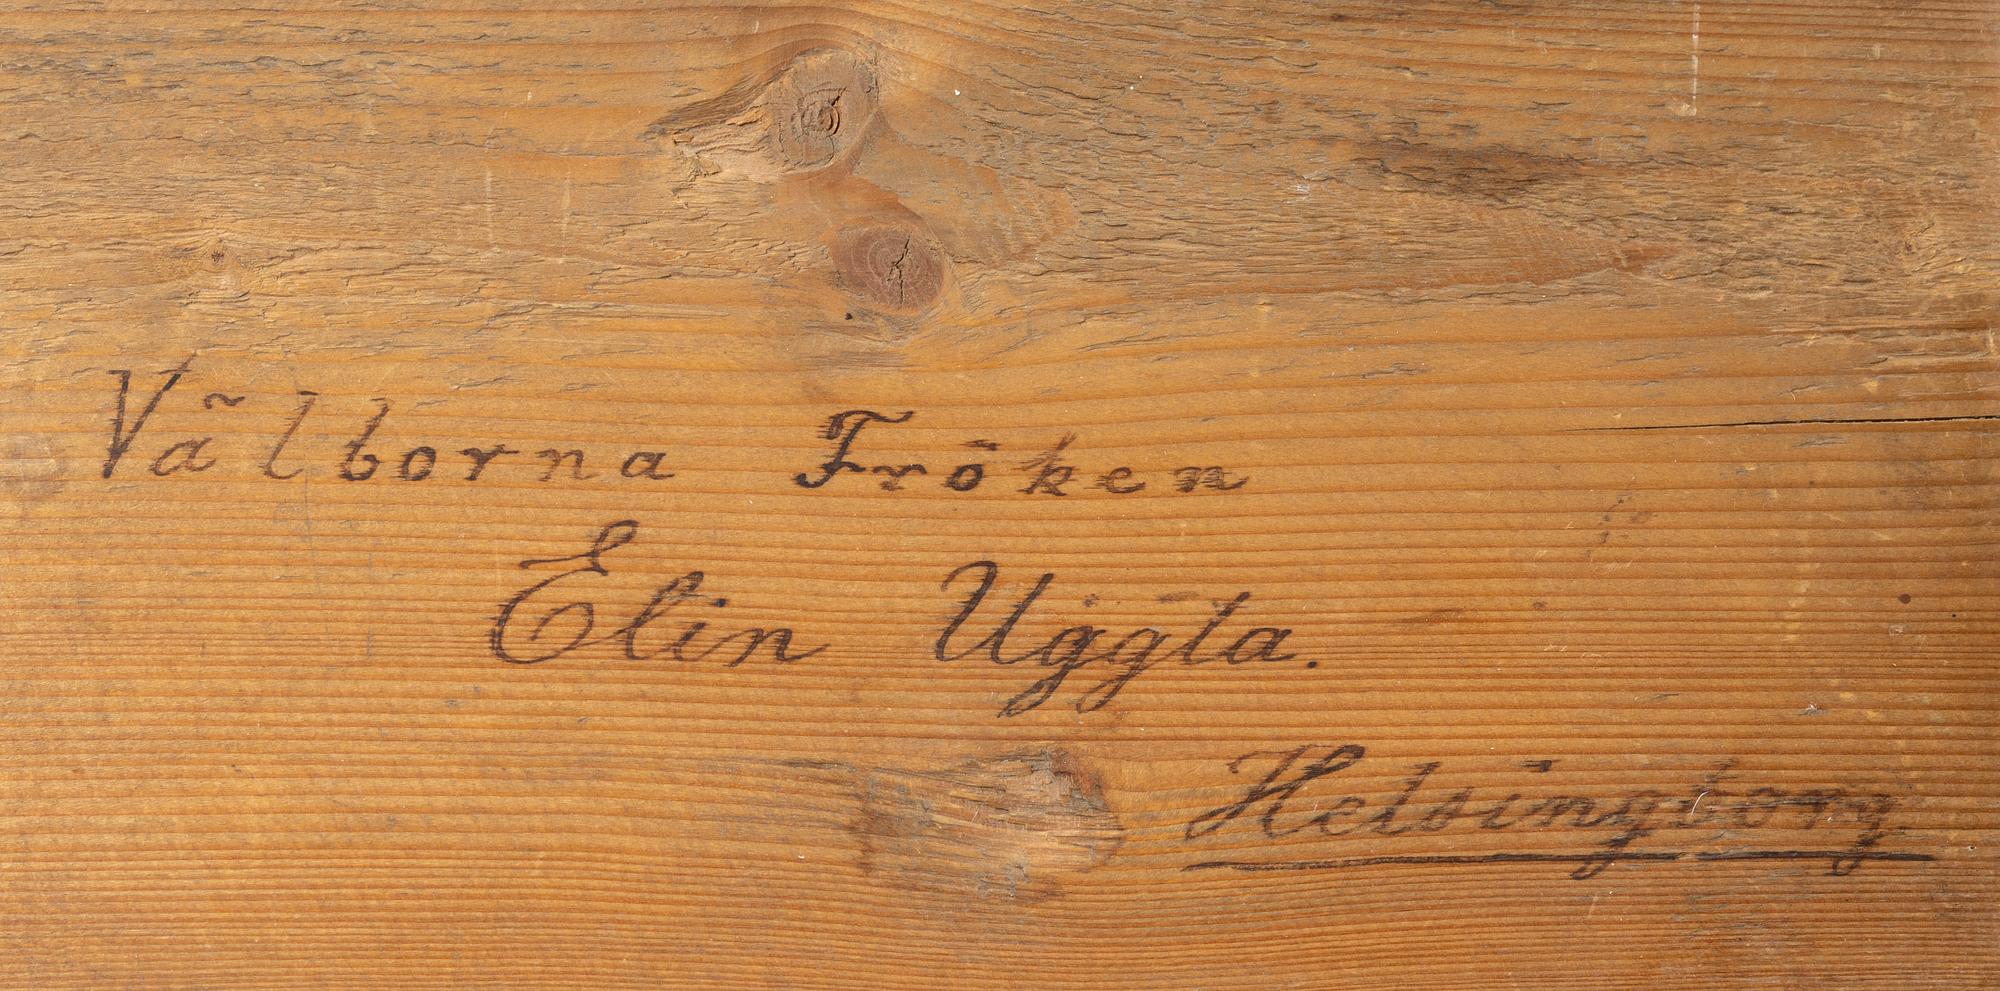 Välborna Fröken
Elin Uggla.
Helsingborg